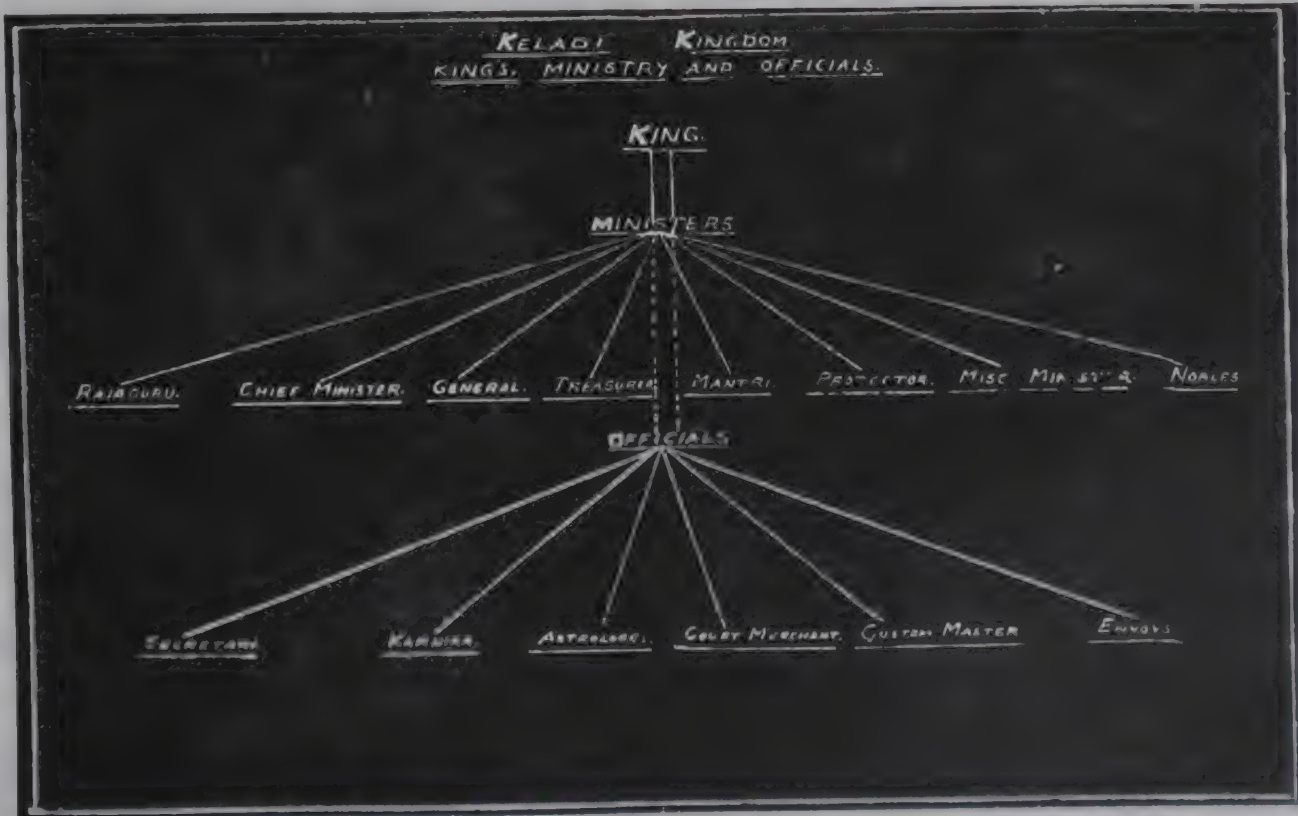 KELADI KINGDOM
KINGS. MINISTRY AND OFFICIALS.
KING.
MINISTERS
RAJAGURU. CHIEF MINISTER. GENERAL. TREASURER MANTRI. PROTECTOR. MISC MINISTER. NOBLES
OFFICIALS
SECRETARY ASTROLOGER. COURT MERCHANT. CUSTOM MASTER ENVOYS